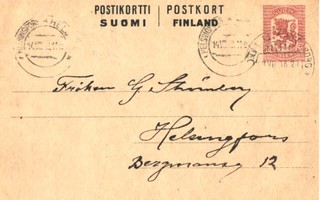 POSTIKORTTI POSTKORT
SUOMI FINLAND
Fröken G. Strömberg
Helsingfors
12